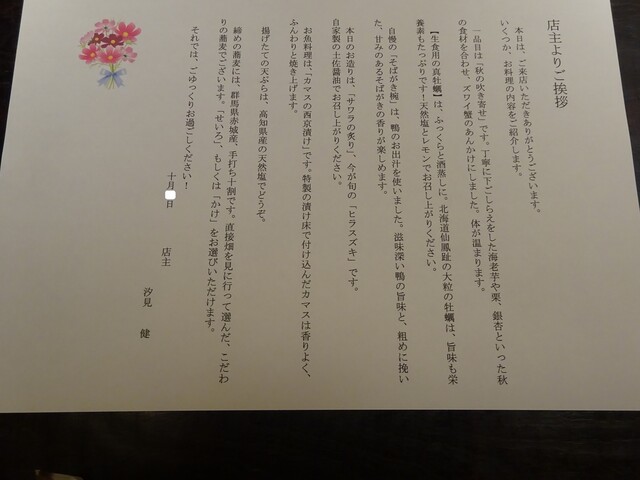 店主よりご挨拶
本日は、ご来店いただきありがとうございます。
いくつか、お料理の内容をご紹介します。
一品目は「秋の吹き寄せ」です。丁寧に下ごしらえをした海老芋や栗、銀杏といった秋
の食材を合わせ、ズワイ蟹のあんかけにしました。体が温まります。
【生食用の真牡蠣】は、ふっくらと酒蒸しに。北海道仙鳳趾の大粒の牡蠣は、旨味も栄
養素もたっぷりです！天然塩とレモンでお召し上がりください。
自慢の「そばがき椀」は、鴨のお出汁を使いました。滋味深い鴨の旨味と、粗めに挽い
た、甘みのあるそばがきの香りが楽しめます。
本日のお造りは、「サワラの炙り」、今が旬の「ヒラスズキ」です。
自家製の土佐醤油でお召し上がりください。
お魚料理は、「カマスの西京漬け」です。特製の漬け床で付け込んだカマスは香りよく、
ふんわりと焼き上げます。
揚げたての天ぷらは、高知県産の天然塩でどうぞ。
締めの蕎麦には、群馬県赤城産、手打ち十割です。直接畑を見に行って選んだ、こだわ
りの蕎麦でございます。「せいろ」、もしくは「かけ」をお選びいただけます。
それでは、ごゆっくりお過ごしください！
十月 日
店主 汐見 健